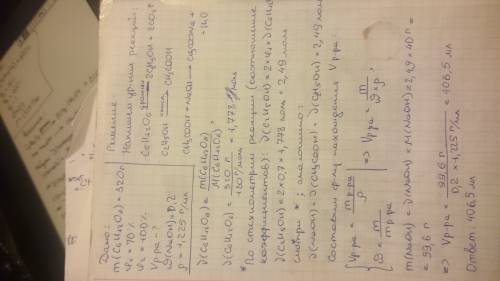 Дано:
m(C6H12O6) = 320г
φ1 = 70%
φ2 = 100%
Vр-ра - ?
ϑ(NaOH) = 0,2
ρ = 1,225 г/мл
Решение
Напишем ур-ния реакций:
C6H12O6 → 2C2H5OH + 2CO2↑
C2H5OH → CH3COOH
CH3COOH + NaOH → CH3COONa +
+ H2O
∂(C6H12O6) = m(C6H12O6) / M(C6H12O6)
∂(C6H12O6) = 320 г / 180 г/моль = 1,778 моль
*По стехиометрии реакции (соотношение
коэффициентов): ∂(C2H5OH) = 2×φ1×∂(C6H12O6)
∂(C2H5OH) = 2×0,7×1,778 моль = 2,49 моль
смотри *; аналогично:
∂(NaOH) = ∂(CH3COOH) = ∂(C2H5OH) = 2,49 моль
Составим ф-му нахождения Vр-ра:
{ Vр-ра = mр-ра / ρ
ϑ = m / mр-ра => Vр-ра = m / ϑ×ρ
m(NaOH) = ∂(NaOH)×M(NaOH) = 2,49×40 г =
= 99,6 г
=> Vр-ра = 99,6 г / 0,2×1,225 г/мл = 406,5 мл
Ответ: 406,5 мл